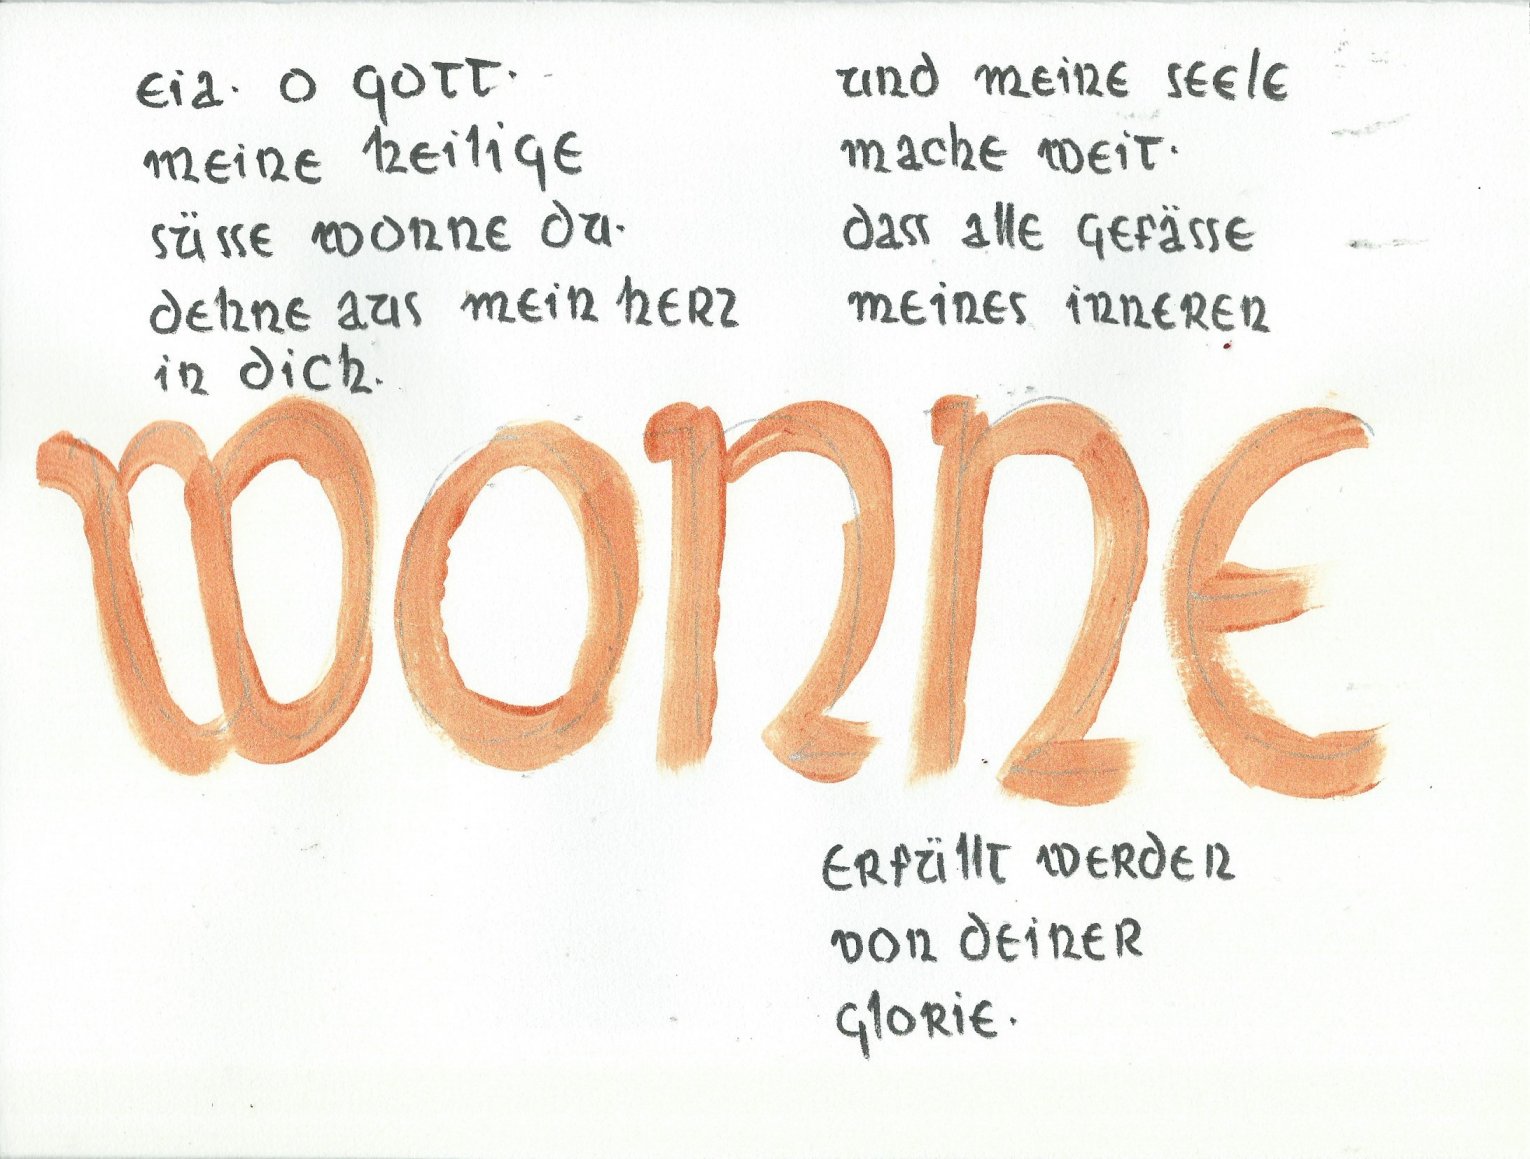 eia. o gott.
meine heilige
süsse wonne du.
dehne aus mein herz
in dich.
und meine seele
mache weit.
dass alle gefässe
meines inneren
wonne
erfüllt werden
von deiner
glorie.